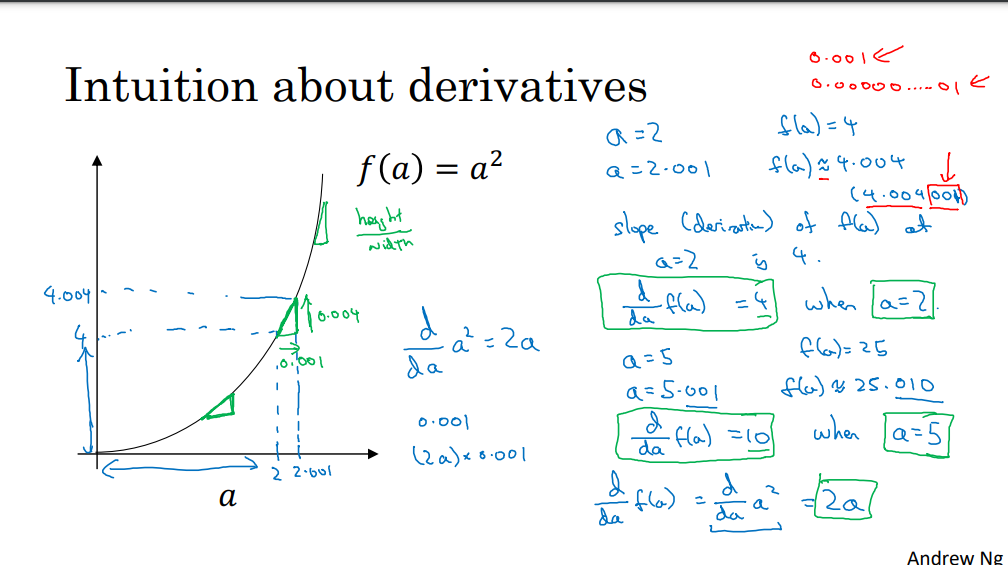 Intuition about derivatives
0.001 ←
0.00000.....01 ←
f(a) = a²
height
width
4.004
4
0.004
0.001
2 2.001
a
d/da a² = 2a
0.001
(2a) × 0.001
a = 2 f(a) = 4
a = 2.001 f(a) ≈ 4.004
(4.004001)
slope (derivative) of f(a) at
a = 2 is 4.
d/da f(a) = 4 when a = 2.
a = 5 f(a) = 25
a = 5.001 f(a) ≈ 25.010
d/da f(a) = 10 when a = 5
d/da f(a) = d/da a² = 2a
Andrew Ng